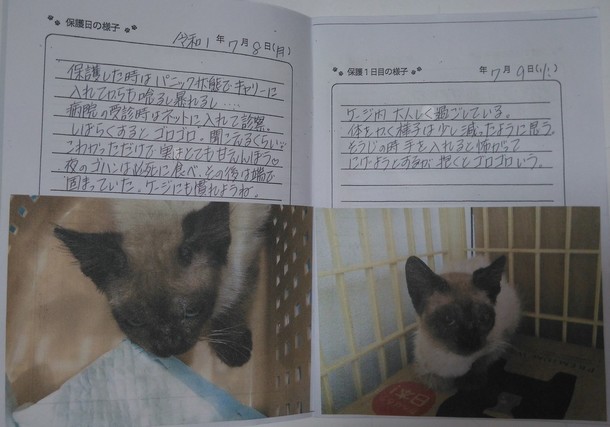 保護日の様子
令和1年7月8日(月)
保護した時はパニック状態でキャリーに
入れてからも唸るし暴れるし….
病院の受診時はネットに入れて診察。
しばらくするとゴロゴロ。聞こえるくらい…
こわかっただけで実はとても甘えんぼう♡
夜のゴハンは必死に食べ、その後は端で
固まっていた。ケージにも慣れようね。
保護1日目の様子
年7月9日(火)
ケージ内 大人しく過ごしている。
体をかく様子は少し減ったように思う。
そうじの時手を入れると怖がって
にげようとするが抱くとゴロゴロいう。